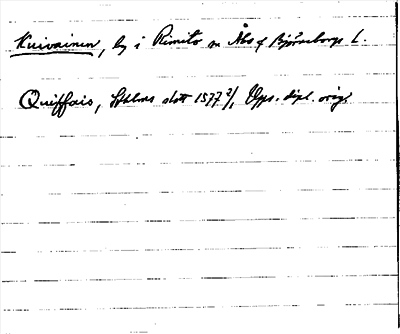 Kuivainen, by i Rimito sn Åbo & Björneborgs L.
Quiffais, Sthlms slott 1577 2/1, Ups. dipl. orig.